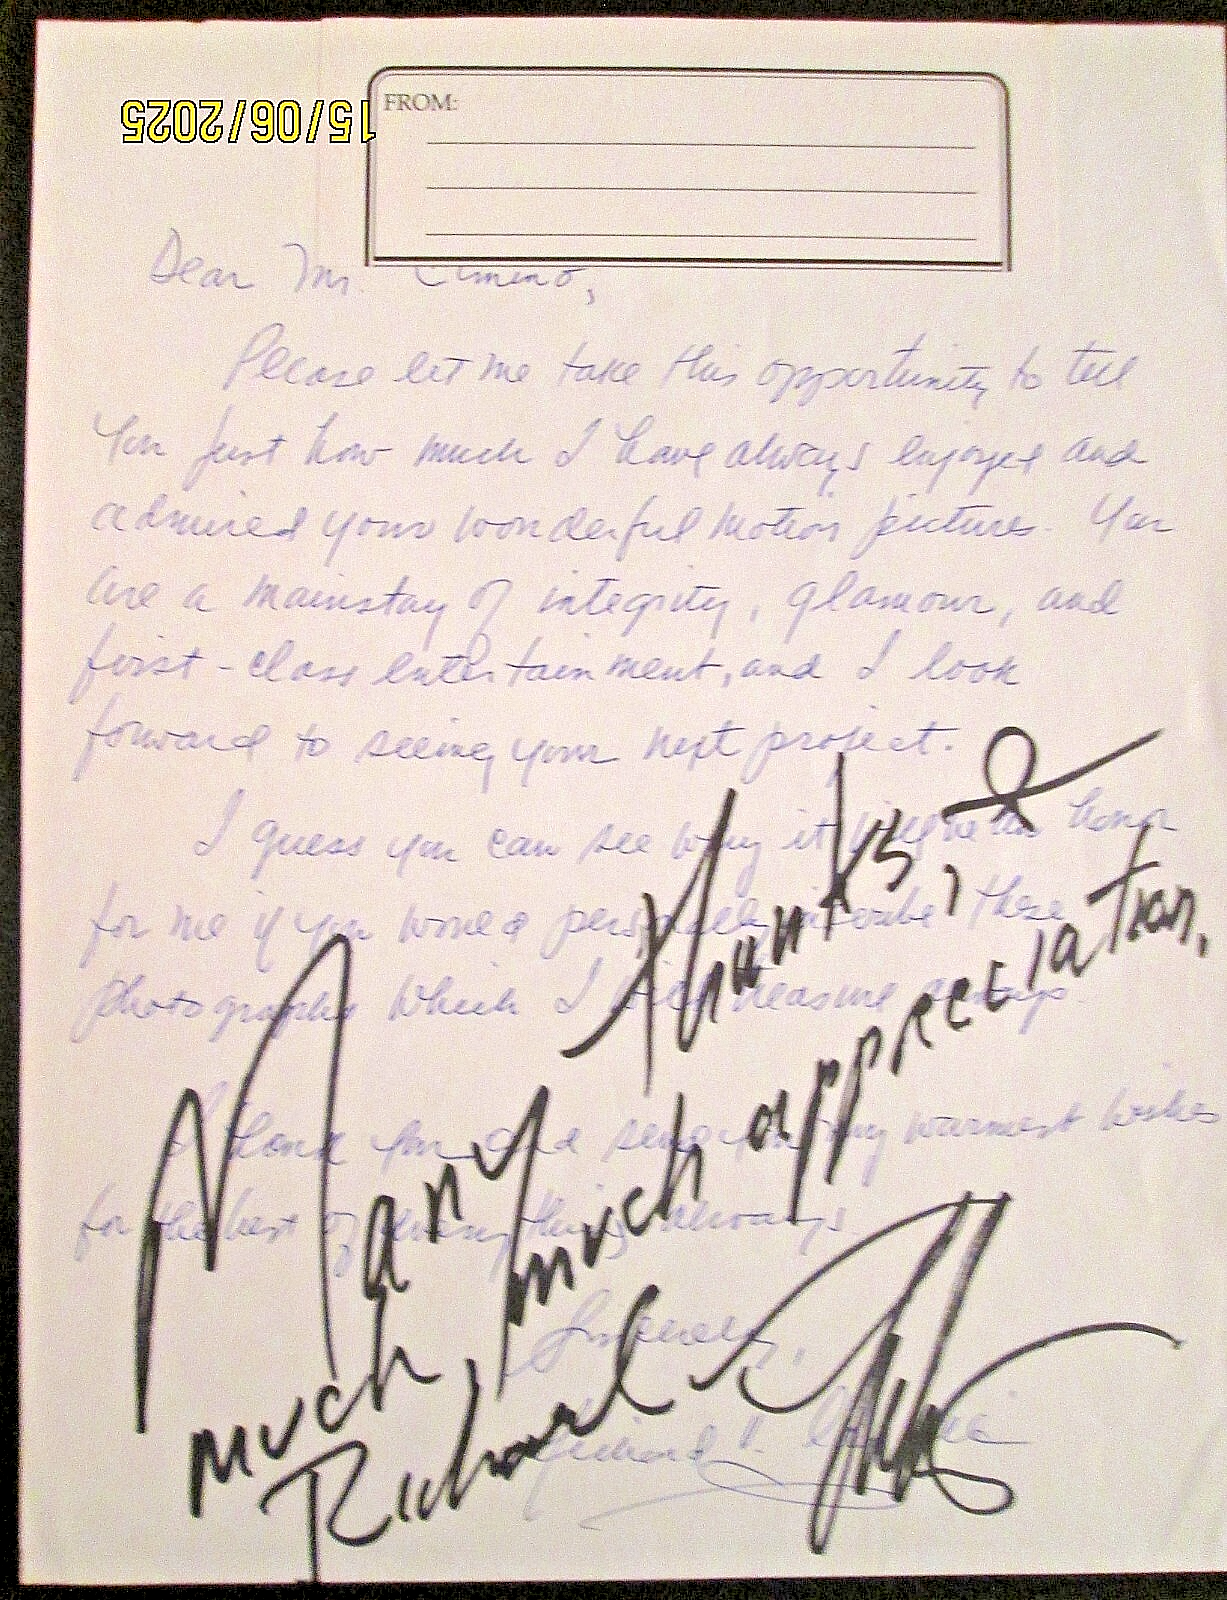 15/06/2025
FROM:
Dear Mr. Cimino,
Please let me take this opportunity to tell
you just how much I have always enjoyed and
admired your wonderful motion pictures. You
are a mainstay of integrity, glamour, and
first-class entertainment, and I look
forward to seeing your next project.
I guess you can see why it will be an honor
for me if you would personally inscribe these
photographs which I will treasure always.
I thank you and send you my warmest wishes
for the best of everything always.
Sincerely,
Richard
Many thanks, &
much, much appreciation,
Richard -